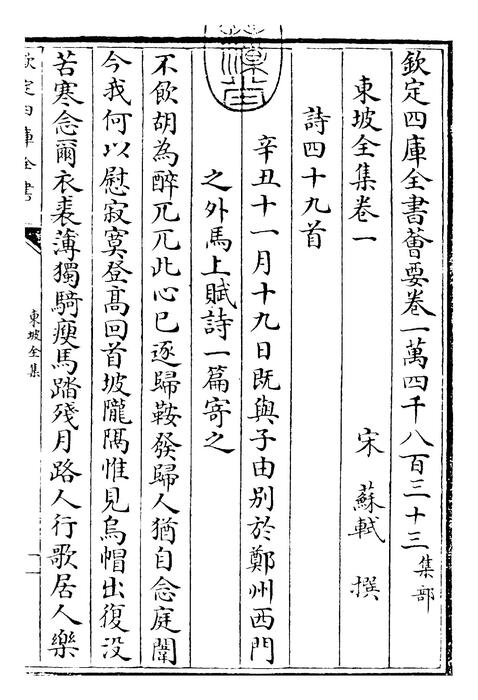 欽定四庫全書薈要卷一萬四千八百三十三集部
東坡全集卷一
宋 蘇軾 撰
詩四十九首
辛丑十一月十九日既與子由别於鄭州西門
之外馬上賦詩一篇寄之
不飲胡為醉兀兀此心已逐歸鞍發歸人猶自念庭闈
今我何以慰寂寞登髙回首坡隴隔惟見烏帽出復没
苦寒念爾衣裘薄獨騎瘦馬踏殘月路人行歌居人樂
欽定四庫全書
東坡全集